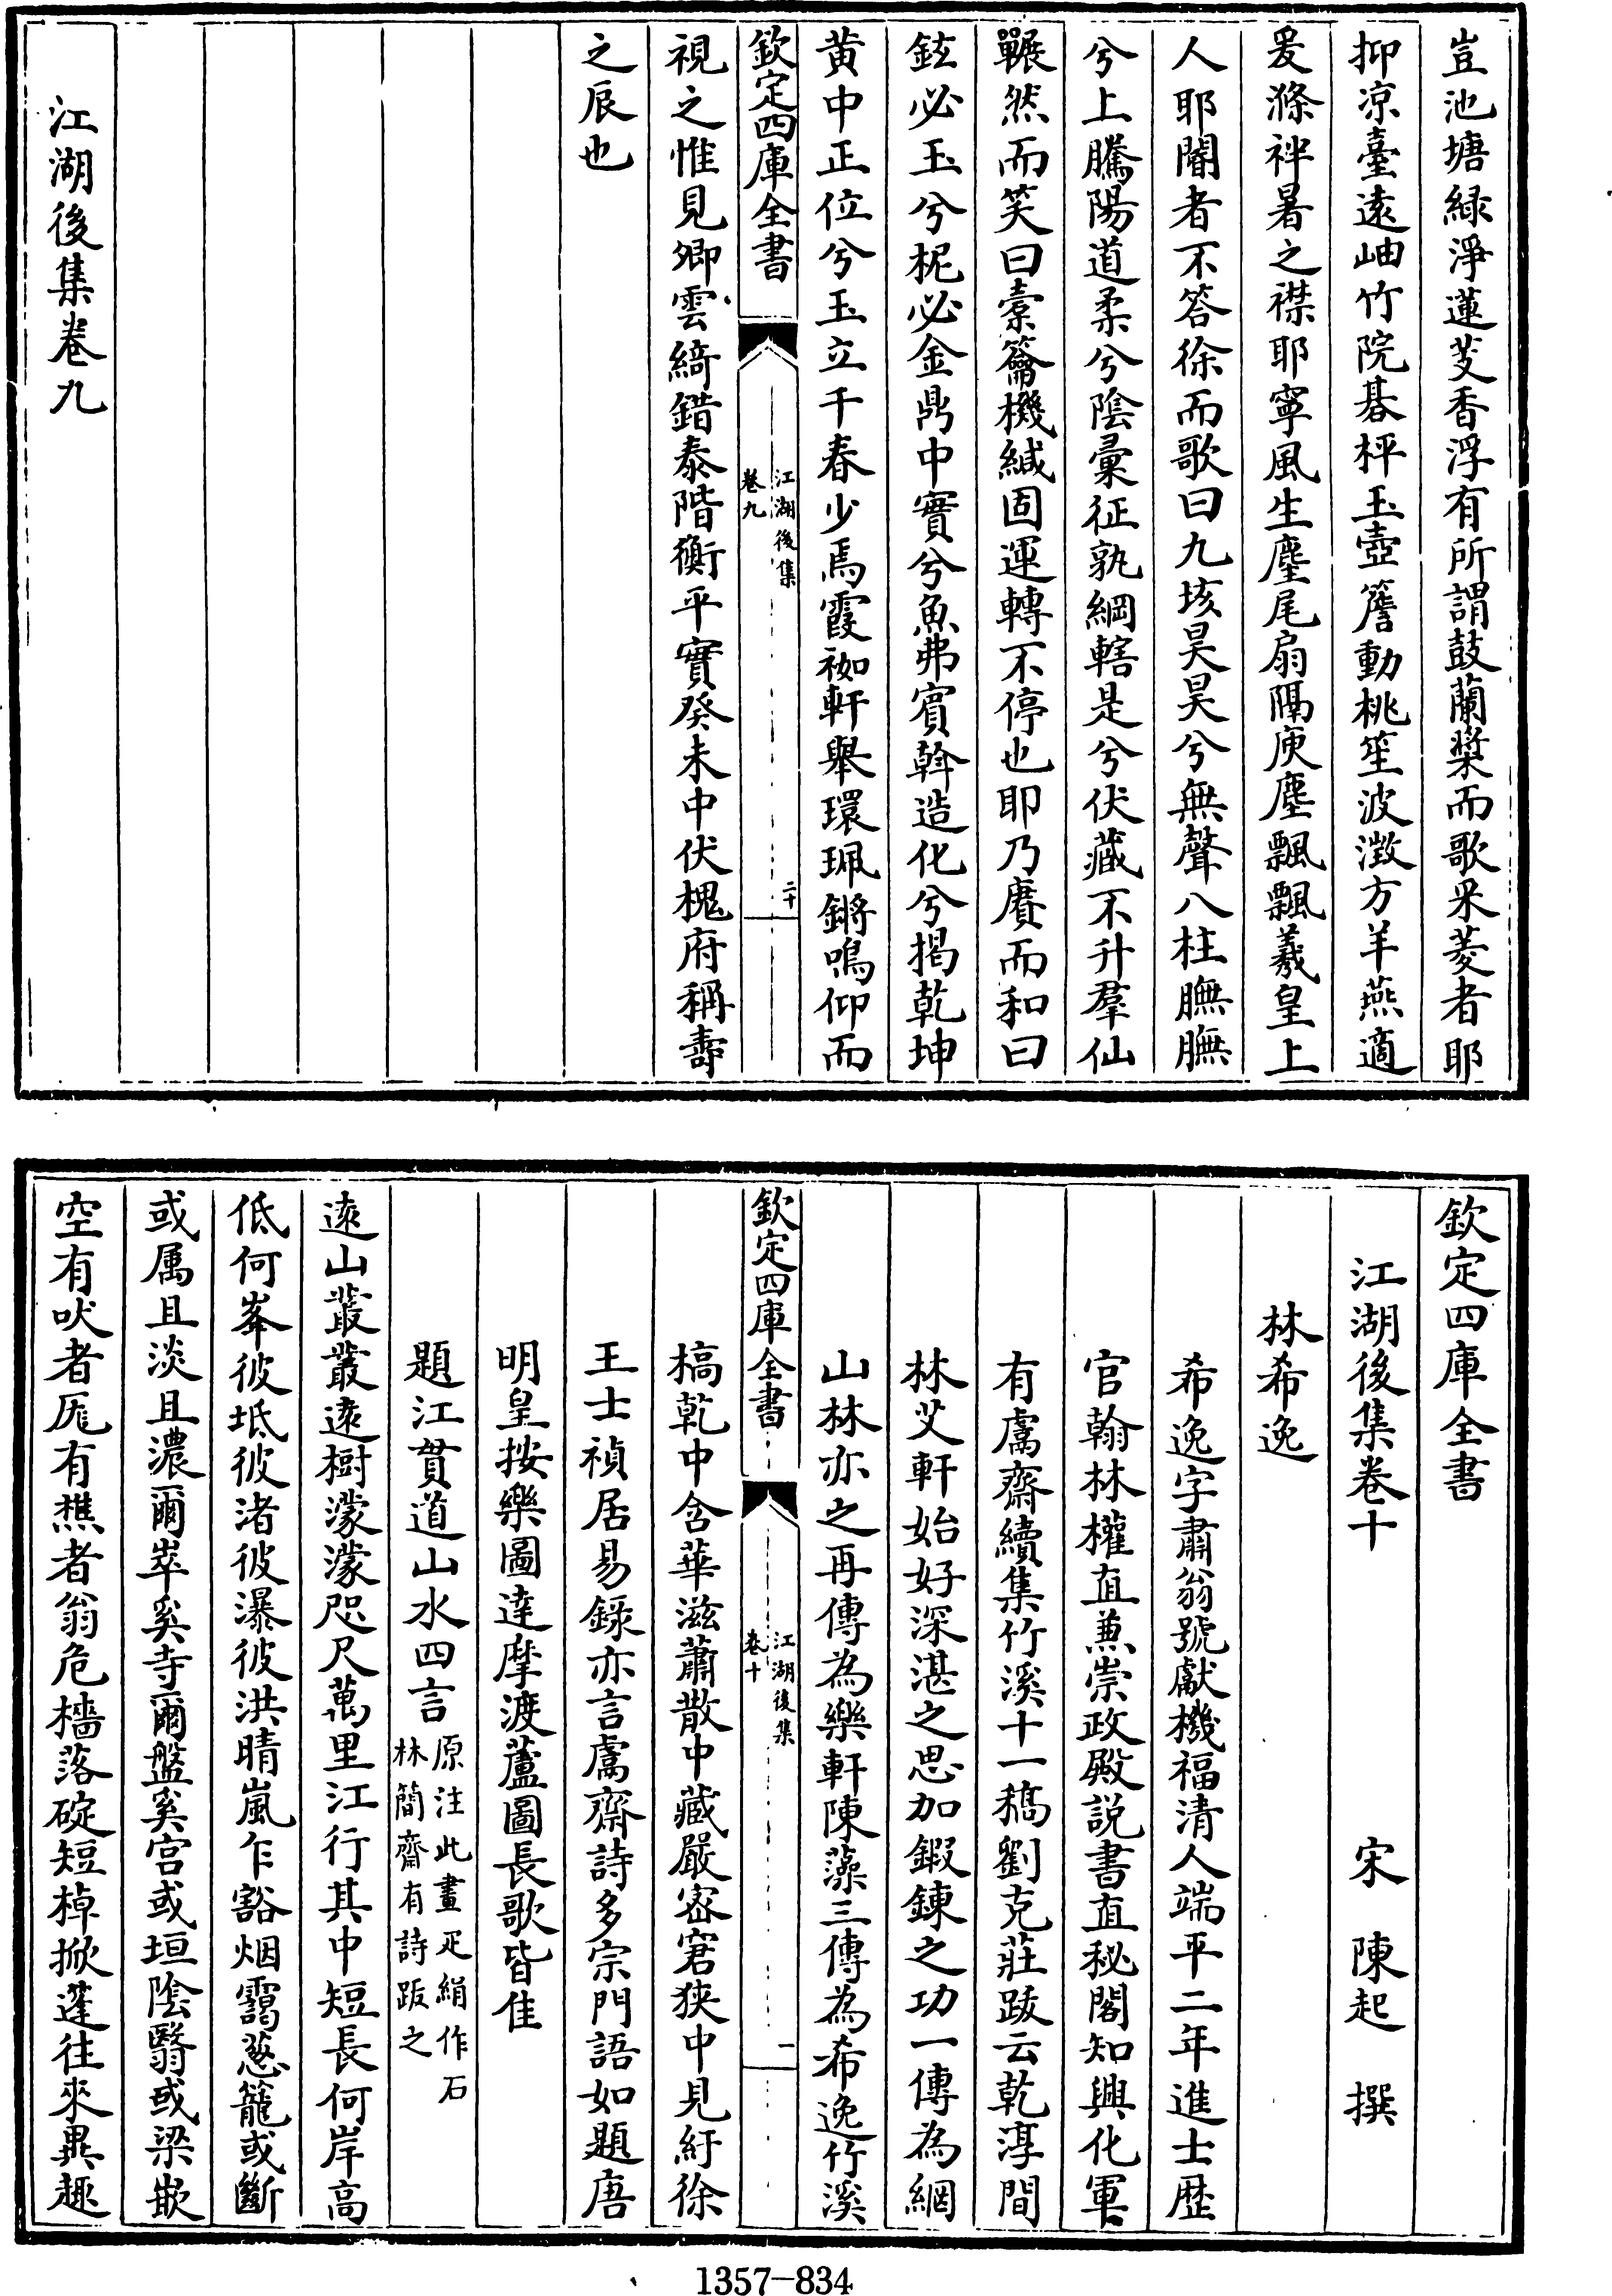 豈池塘緑淨蓮芰香浮有所謂鼓蘭槳而歌采菱者耶
抑凉臺遠岫竹院碁枰玉壺簷動桃笙波澂方羊燕適
爰滌袢暑之襟耶寧風生麈尾扇隔庾塵飄飄羲皇上
人耶闇者不答徐而歌曰九垓昊昊兮無聲八柱膴膴
兮上騰陽道柔兮陰彚征孰綱轄是兮伏藏不升羣仙
囅然而笑曰橐籥機緘固運轉不停也耶乃賡而和曰
鉉必玉兮柅必金鼎中實兮魚弗賓斡造化兮揭乾坤
黄中正位兮玉立千春少焉霞袽軒舉環珮鏘鳴仰而
欽定四庫全書
江湖後集
卷九
二十
視之惟見卿雲綺錯泰階衡平實癸未中伏槐府稱壽
之辰也
江湖後集卷九
欽定四庫全書
江湖後集卷十
宋 陳起 撰
林希逸
希逸字肅翁號獻機福清人端平二年進士歴
官翰林權直兼崇政殿説書直秘閣知興化軍
有鬳齋續集竹溪十一稿劉克莊跋云乾淳間
林艾軒始好深湛之思加鍛鍊之功一傳為網
山林亦之再傳為樂軒陳藻三傳為希逸竹溪
欽定四庫全書
江湖後集
卷十
一
槁乾中含華滋蕭散中藏嚴宻窘狹中見紆徐
王士禎居易録亦言鬳齋詩多宗門語如題唐
明皇按樂圖達摩渡蘆圖長歌皆佳
題江貫道山水四言
原注此畫疋絹作石
林簡齋有詩䟦之
逺山叢叢逺樹濛濛咫尺萬里江行其中短長何岸高
低何峯彼坻彼渚彼瀑彼洪晴嵐乍豁烟靄葱籠或斷
或属且淡且濃爾崒奚寺爾盤奚宫或垣陰翳或梁嵌
空有吠者厖有樵者翁危檣落碇短棹掀蓬往來異趣
1357-834